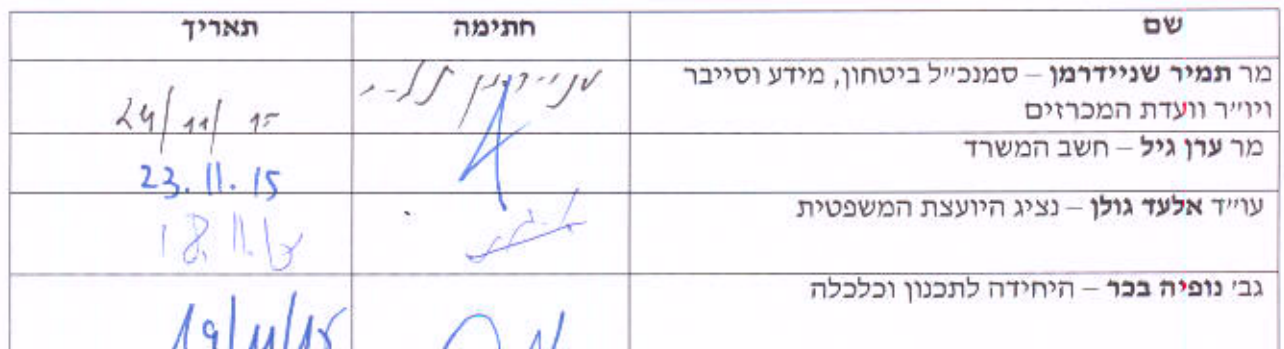 שם חתימה תאריך
מר תמיר שניידרמן – סמנכ״ל ביטחון, מידע וסייבר
ויו״ר וועדת המכרזים
24/11/15
מר ערן גיל – חשב המשרד
23.11.15
עו״ד אלעד גולן – נציג היועצת המשפטית
18.11.15
גב׳ נופיה בכר – היחידה לתכנון וכלכלה
19/11/15